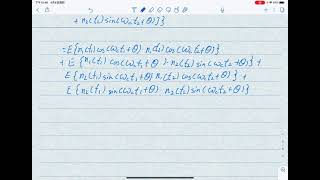 + n₂(t₂) sin(ω₀t₂+θ)]}
=E{n₁(t₁)cos(ω₀t₁+θ)·n₁(t₂)cos(ω₀t₂+θ)}
+ E{n₁(t₁) cos(ω₀t₁+θ)·n₂(t₂)sin(ω₀t₂+θ)} +
E{n₂(t₁)sin(ω₀t₁+θ)·n₁(t₂)cos(ω₀t₂+θ)} +
E{n₂(t₁) sin(ω₀t₁+θ)·n₂(t₂)sin(ω₀t₂+θ)}